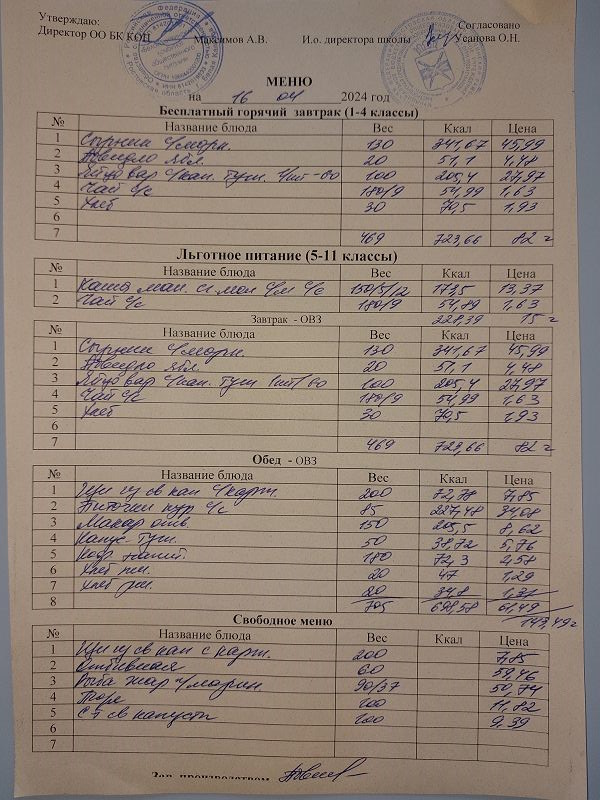 Утверждаю: Согласовано
Директор ОО БК КОЦ Максимов А.В. И.о. директора школы Усанова О.Н.
МЕНЮ
на 16 04 2024 год
Бесплатный горячий завтрак (1-4 классы)
№ Название блюда Вес Ккал Цена
1 Сырники с/морк. 130 341,67 45,99
2 Повидло ябл. 20 51,1 4,48
3 Яйцо вар с/кап. туш. 100 205,4 27,97
4 Чай с/с 180/9 54,99 1,63
5 Хлеб 30 70,5 1,93
6
7 469 723,66 82
Льготное питание (5-11 классы)
№ Название блюда Вес Ккал Цена
1 Каша ман. 150/5/12 173,5 13,37
2 Чай с/с 180/9 54,89 1,63
228,39 15
Завтрак - ОВЗ
№ Название блюда Вес Ккал Цена
1 Сырники с/морк. 130 341,67 45,99
2 Повидло ябл. 20 51,1 4,48
3 Яйцо вар с/кап. туш 100 205,4 27,97
4 Чай с/с 180/9 54,99 1,63
5 Хлеб 30 70,5 1,93
7 469 723,66 82
Обед - ОВЗ
№ Название блюда Вес Ккал Цена
1 Щи из св кап с/карт. 200 72,78 7,85
2 Биточки кур с/с 85 227,48 34,08
3 Макар отв. 150 205,5 8,62
4 Капус. туш. 50 38,72 5,76
5 Коф. напит. 180 72,3 2,58
6 Хлеб пш. 20 47 1,29
7 Хлеб рж. 20 34,8 1,31
8 705 698,58 61,49
143,49
Свободное меню
№ Название блюда Вес Ккал Цена
1 Щи из св кап с карт. 200 7,85
2 Отбивная 60 59,46
3 Рыба жар с/марин. 90/37 50,74
4 Пюре 100 11,82
5 С-т св капусты 100 9,39
6
7
Зав. производством